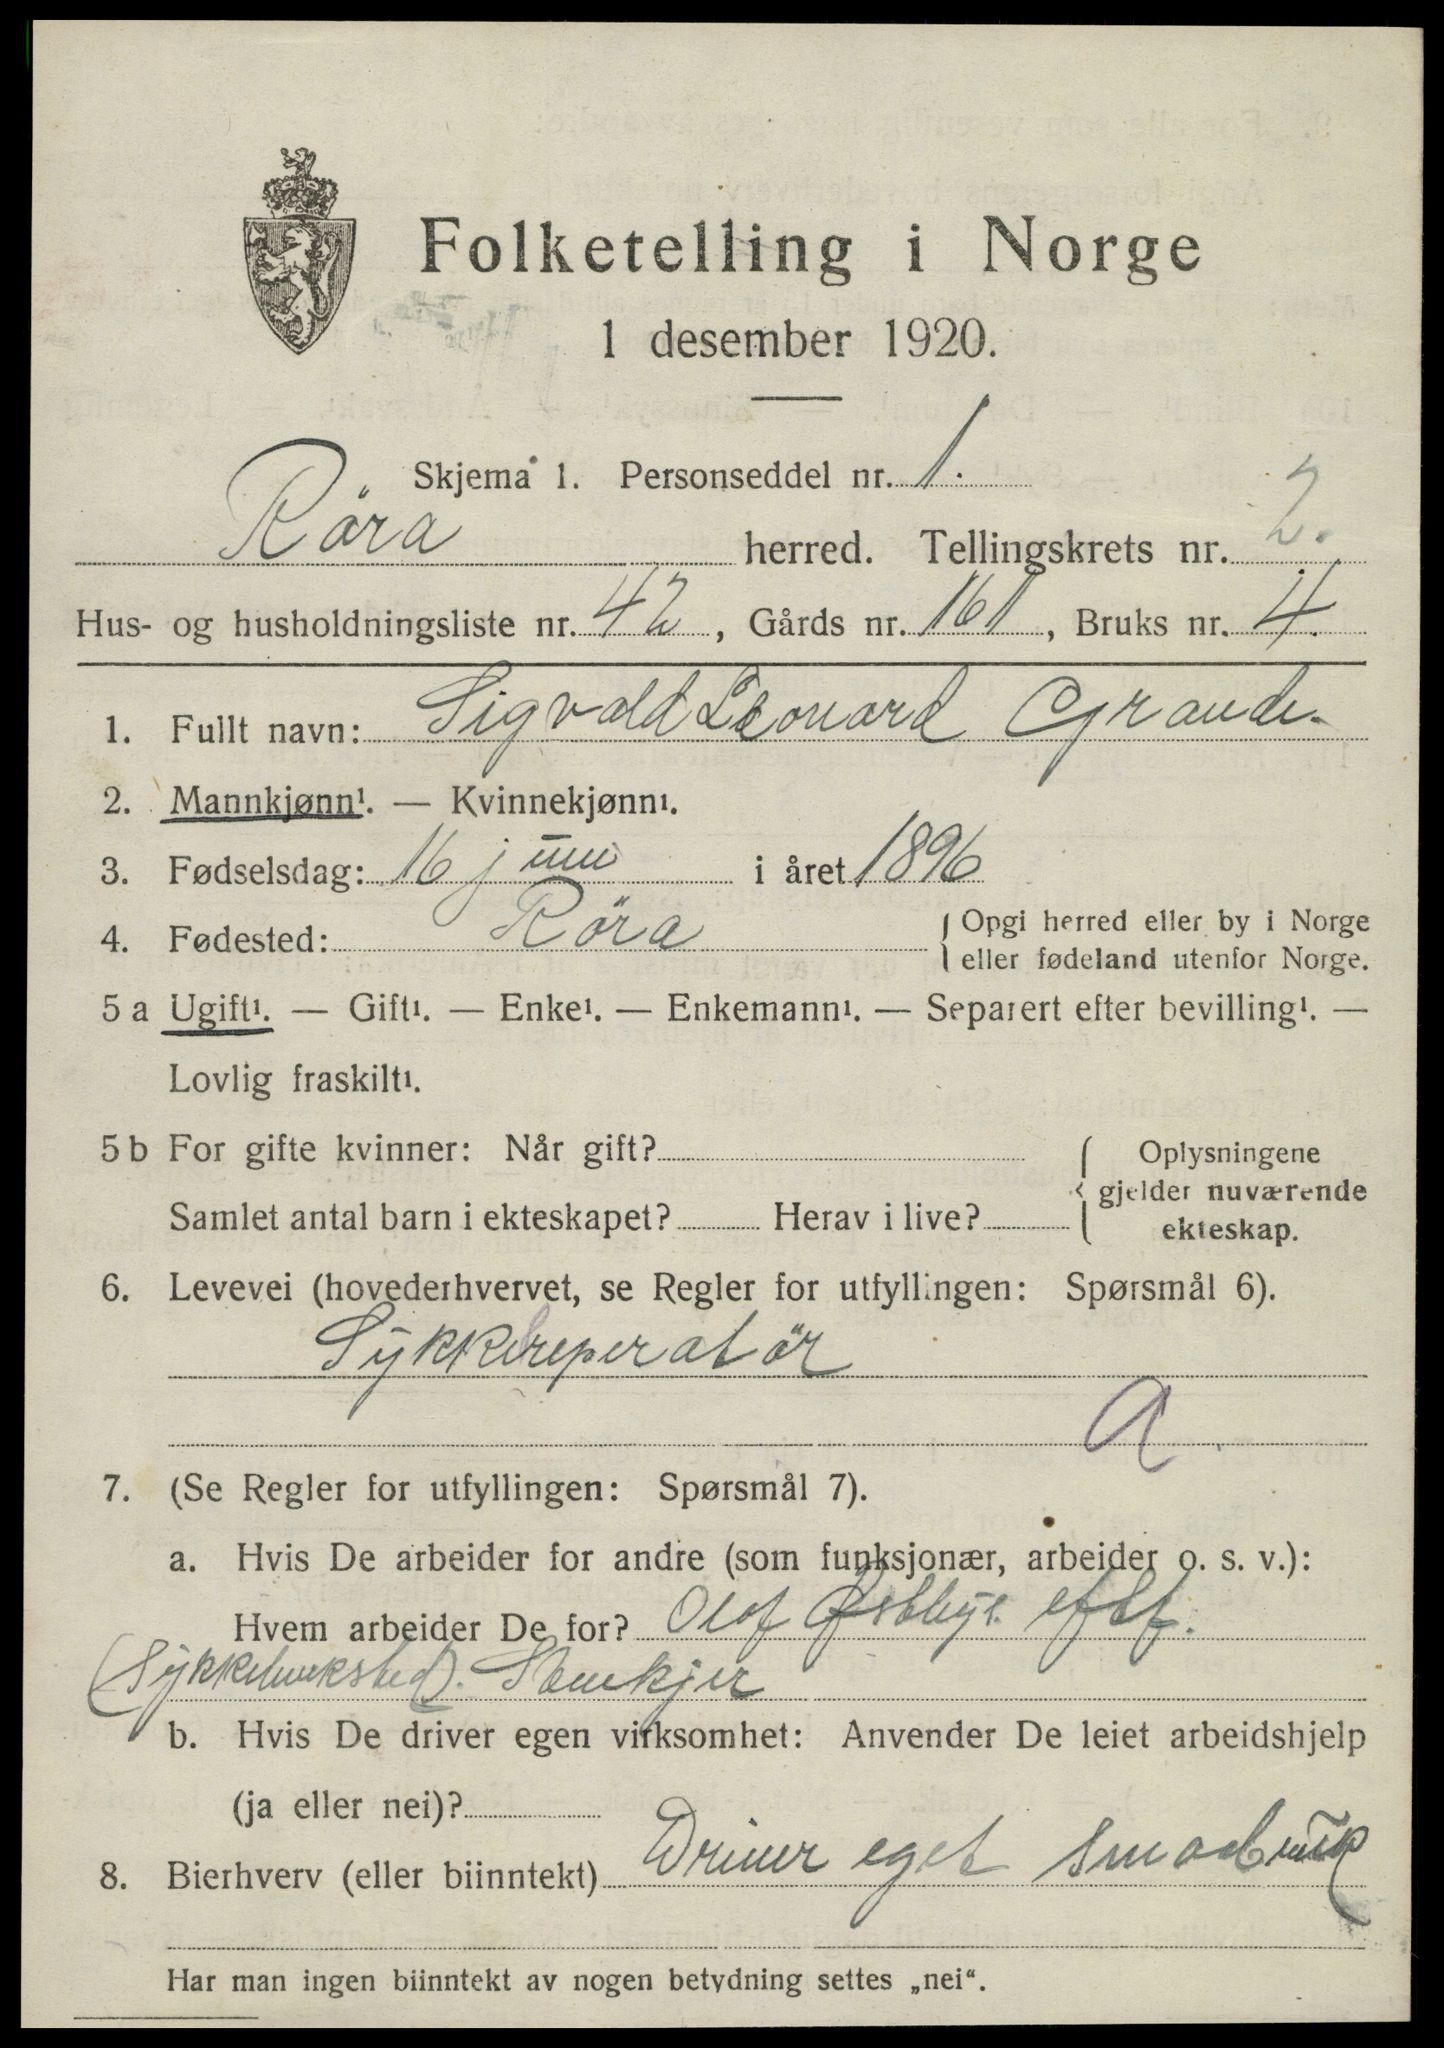 Folketelling i Norge
1 desember 1920.
Skjema 1. Personseddel nr. 1.
Röra herred. Tellingskrets nr. 2.
Hus- og husholdningsliste nr. 42, Gårds nr. 161, Bruks nr. 4.
1. Fullt navn: Sigvald Leonard Grande.
2. Mannkjønn¹. — Kvinnekjønn¹.
3. Fødselsdag: 16 juni i året 1896
4. Fødested: Röra { Opgi herred eller by i Norge
eller fødeland utenfor Norge.
5 a Ugift¹. — Gift¹. — Enke¹. — Enkemann¹. — Separert efter bevilling¹. —
Lovlig fraskilt¹.
5 b For gifte kvinner: Når gift? { Oplysningene
gjelder nuværende
Samlet antal barn i ekteskapet? Herav i live?
ekteskap.
6. Levevei (hovederhvervet, se Regler for utfyllingen: Spørsmål 6).
Sykkelreperatör
A
7. (Se Regler for utfyllingen: Spørsmål 7).
a. Hvis De arbeider for andre (som funksjonær, arbeider o. s. v.):
Hvem arbeider De for? Olof Østbys eftf.
(Sykkelverksted). Stenkjer
b. Hvis De driver egen virksomhet: Anvender De leiet arbeidshjelp
(ja eller nei)?
8. Bierhverv (eller biinntekt) Driver eget smaabruk
Har man ingen biinntekt av nogen betydning settes „nei“.